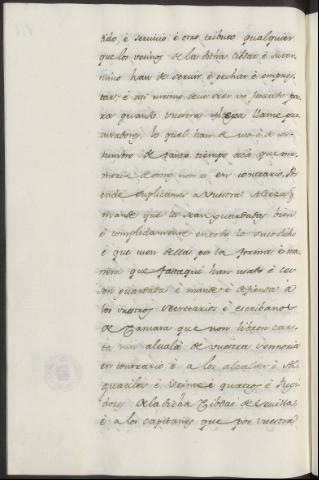 tido, è servicio è otro tributo qualquier
que los vecinos de la dicha cibdad è su ter-
mino han de servir è pechar è empres-
tar, è asi mismo
ra quando vuestra Alteza llame pro-
curadores, lo qual han de uso è de cos-
tumbre de tanto tiempo acà que me-
moria de omes non es en contrario. Por
ende suplicamos à vuestra Alteza
mande que le sean guardadas bien
è complidamente en todo lo susodicho
è que usen dellas por la forma è ma-
nera que fasta aqui han usado è les
son guardadas è mande è defienda à
los vuestros secretarios è escribanos
de Camara que non libren car-
ta nin alvalà de vuestra
en contrario è à los alcaldes è Al-
guaciles è Veinte è quatros è Regi-
dores de la dicha Cibdad de Sevilla
è à los capitanes que por vuestra